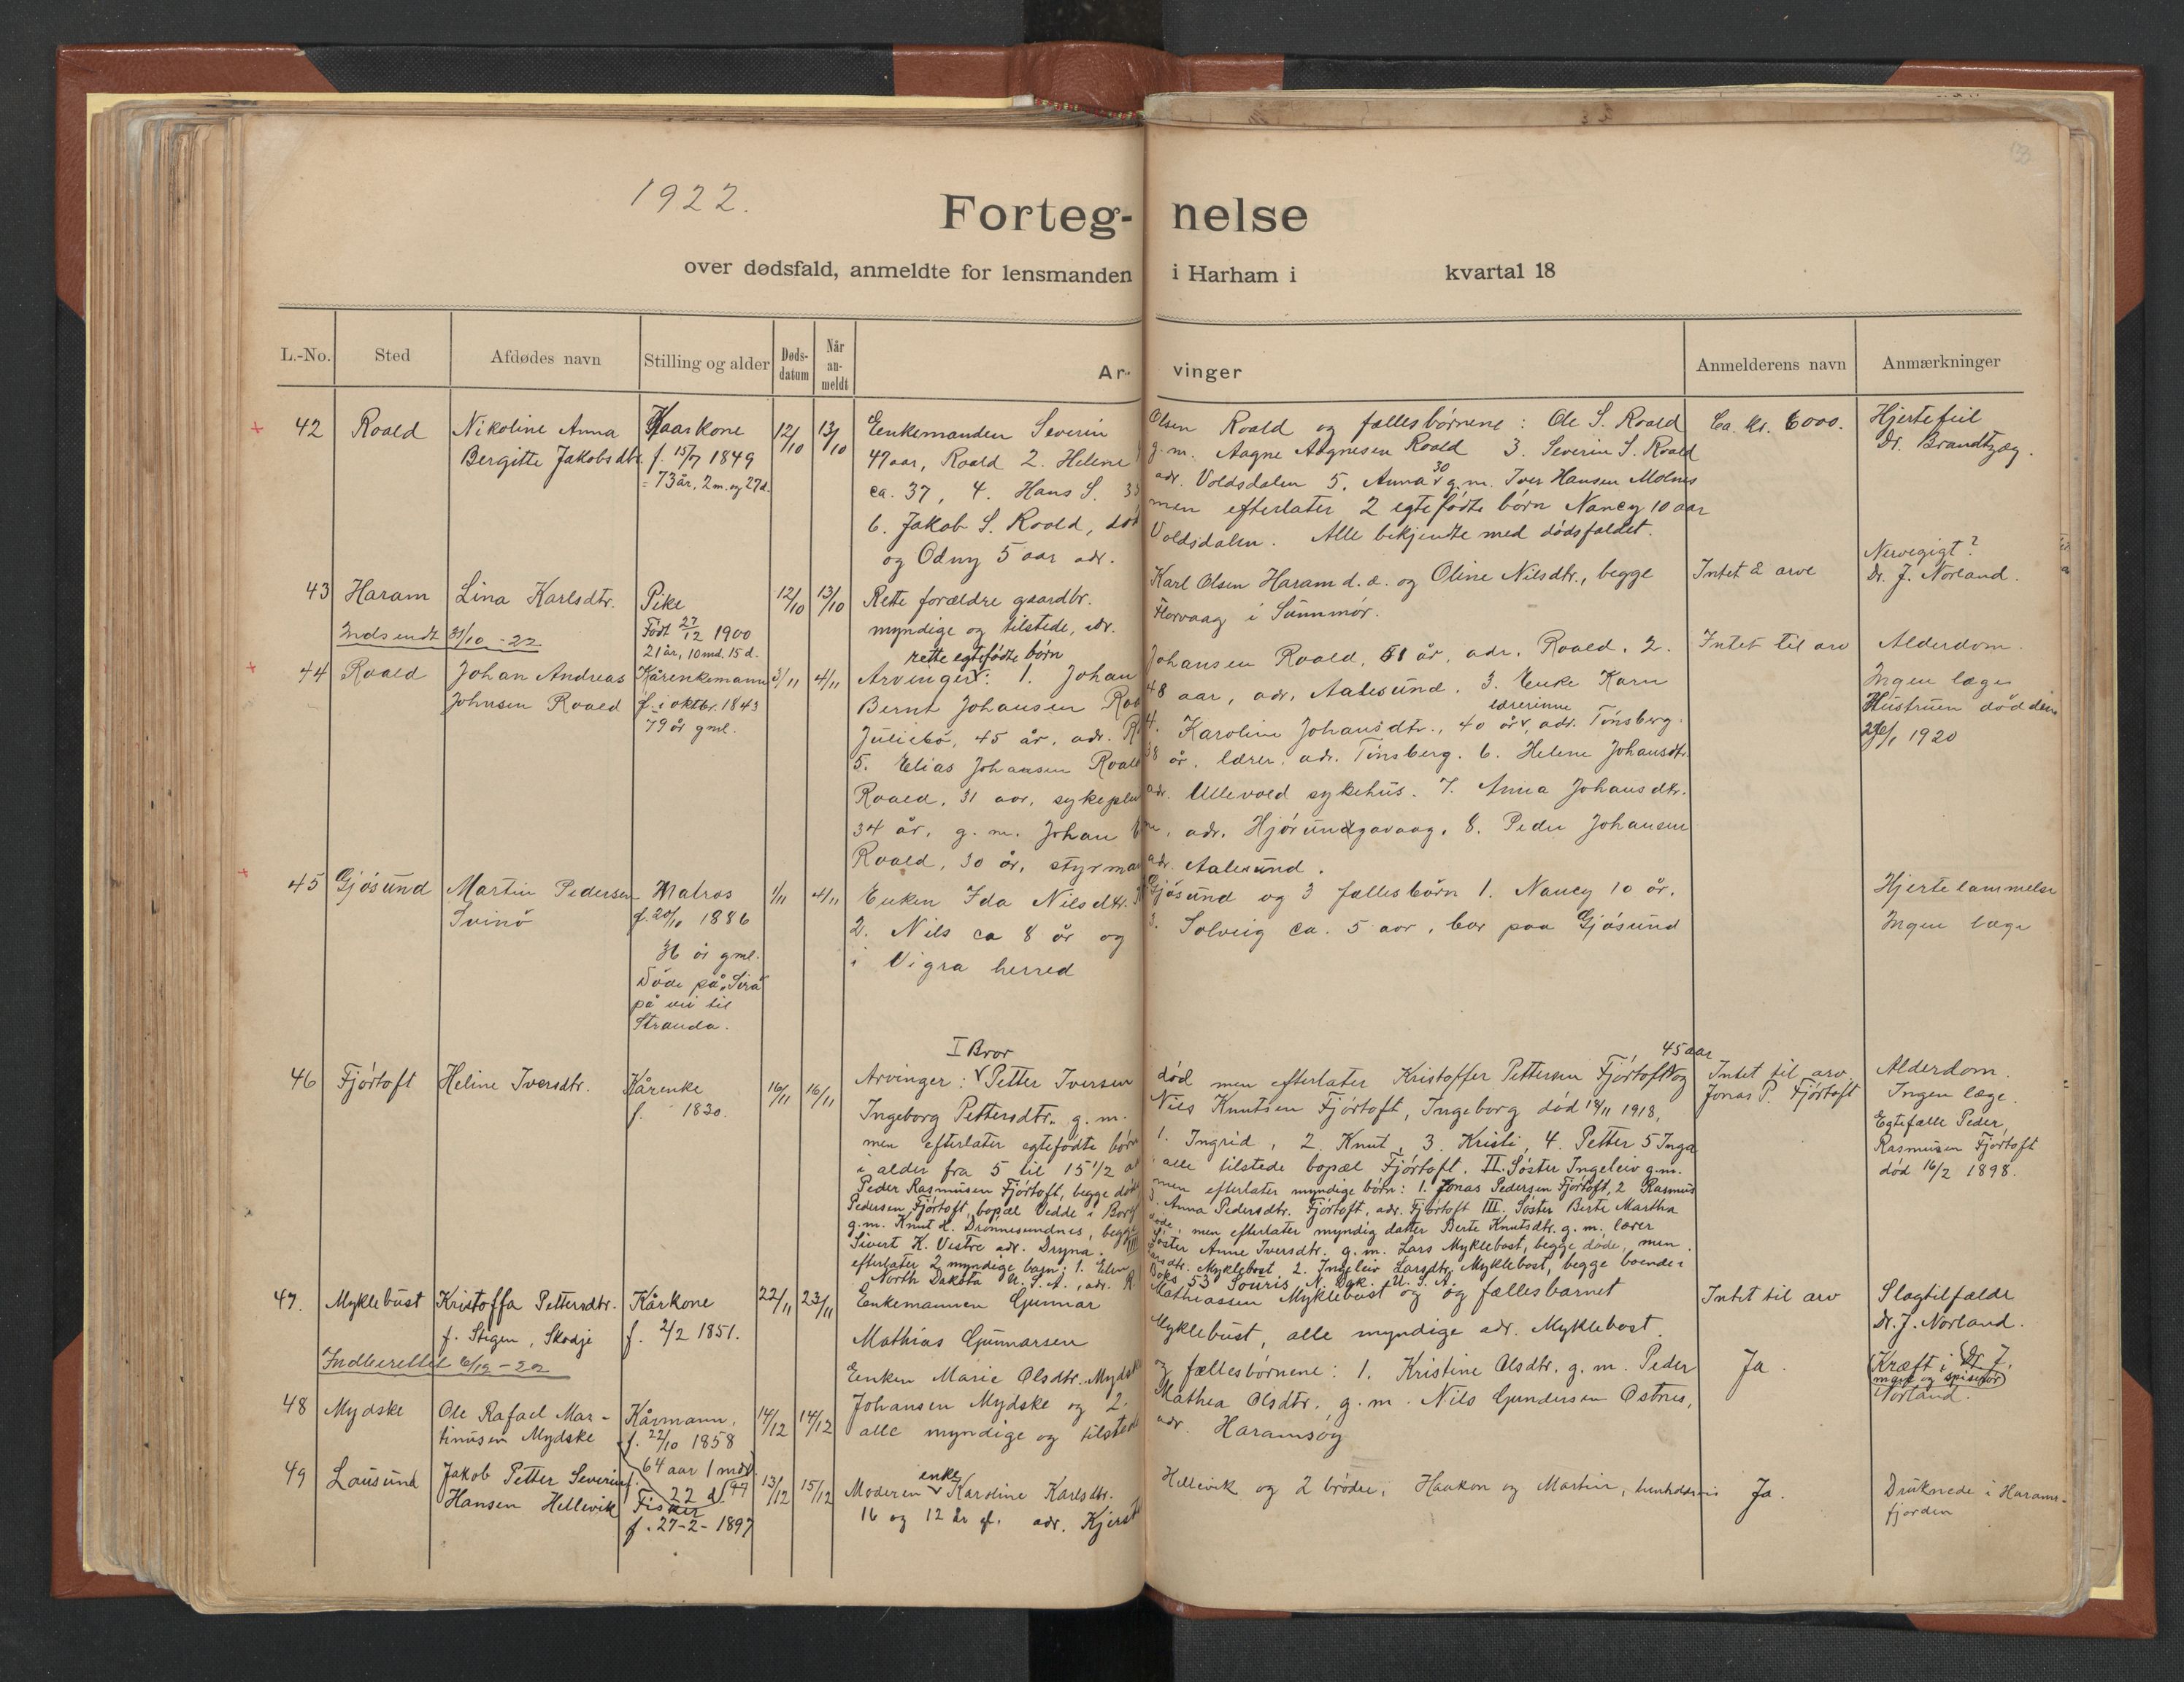 1922.
Forteg- nelse
over dødsfald, anmeldte for lensmanden i Harham i kvartal 18
L.-No. Sted Afdødes navn Stilling og alder Døds- datum Når an- meldt Ar- vinger Anmelderens navn Anmærkninger
42 Roald Nikoline Anna Kaarkone 12/10 13/10 Enkemanden Severin Olsen Roald og fællesbørnene: Ole S. Roald Ca. kr. 6000. Hjertefeil
Bergitte Jakobsdtr. f. 15/7 1849 47 aar, Roald 2. Helene g.m. Aagne Aagnesen Roald 3. Severin S. Roald Dr. Brandtzæg.
= 73 år, 2 m. og 27 d. ca. 37, 4. Hans S. adr. Voldsdalen 5. Anna 30 g.m. Iver Hansen Molnes
6. Jakob S. Roald, død men efterlater 2 egtefødte børn Nancy 10 aar
og Odny 5 aar adr. Voldsdalen. Alle bekjendte med dødsfaldet.
43 Haram Lina Karlsdtr. Pike 12/10 13/10 Rette forældre gaardbr. Karl Olsen Haram d.æ. og Oline Nilsdtr., begge Intet å arve Nervegigt?
Dr. J. Norland.
Indsendt 31/10 -22 Født 27/12 1900 myndige og tilstede, adr. Flovaag i Sünnmør.
21 år, 10 md. 15 d.
rette egtefødte børn
44 Roald Johan Andreas Kårenkemann 3/11 4/11 Arvinger: 1. Johan Johansen Roald, 51 år, adr. Roald. 2. Intet til arv Alderdom.
Johnsen Roald f. i oktbr. 1843 Bernt Johansen Roald 48 aar, adr. Aalesund. 3. Enke Karn Ingen læge
79 år gml. Juliebø, 45 år, adr. R 4. Karoline Johansdtr., 40 år, lærerinne adr. Tønsberg. Hustruen død den
5. Elias Johansen Roald 38 år, lærer, adr. Tønsberg. 6. Helene Johansdtr. 1920
Roald, 31 aar, sykeplei adr. Ullevold sykehus. 7. Anna Johansdtr.
34 år, g.m. Johan adr. Hjørundgavaag. 8. Peder Johansen
Roald, 30 år, styrman adr. Aalesund.
45 Gjøsund Martin Pedersen Matros 1/11 4/11 Enken Ida Nilsdtr. Gjøsund og 3 fællesbørn 1. Nancy 10 år. Hjertelammelse
Svinø f. 20/10 1886 2. Nils ca 8 år og 3. Solveig ca. 5 aar, bor paa Gjøsund Ingen læge
36 år gml. i Vigra herred
Døde på "Sirå"
på vei til
Stranda.
I Bror
46 Fjørtoft Heline Iversdtr. Kårenke 16/11 16/11 Arvinger: Petter Iversen død men efterlater Kristoffer Pettersen Fjørtoft 45 aar og Intet til arv. Alderdom.
f. 1830. Ingeborg Pettersdtr. g.m. Nils Knutsen Fjørtoft, Ingeborg død 1918, Jonas P. Fjørtoft Ingen læge.
men efterlater egtefødte børn 1. Ingrid, 2. Knut, 3. Kristi, 4. Petter 5 Inga Egtefælle Peder,
i alder fra 5 til 15 1/2 alle tilstede bopæl Fjørtoft. II. Søster Ingeleiv g.m. Rasmusen Fjørtoft
Peder Rasmusen Fjørtoft, begge døde men efterlater myndige børn: 1. Jonas Pedersen Fjørtoft, 2 Rasmus død 16/2 1898.
Pedersen Fjørtoft, bopæl Vedde i Borg 3. Anna Pedersdtr. Fjørtoft, adr. Fjørtoft III. Søster Berte Martha
g.m. Knut L. Dronnesundnes, begge døde, men efterlater myndig datter Berte Knutsdtr. g.m. lærer
Sivert K. Vestre adr. Dryna. IIII Søster Anne Iversdtr. g.m. Lars Myklebost, begge døde, men
efterlater 2 myndige barn: 1. Elen Larsdtr. Myklebost 2. Ingeleiv Larsdtr. Myklebost, begge boende i
North Dakota U.S.A., adr. R. Boks 53 Souris N. Dak. U.S.A.
47. Myklebust Kristoffa Pettersdtr. Kårkone 22/11 23/11 Enkemannen Gunnar Mathiassen Myklebust og og fællesbarnet Intet til arv Slagtilfælde
f. Stigen, Skodje f. 2/2 1851. Mathias Gunnarsen Myklebust, alle myndige adr. Myklebost. Dr. J. Norland.
Indberettet 6/12 -22
48 Mydske Ole Rafael Mar- Kårmann, 14/12 14/12 Enken Marie Olsdtr. Mydske og fællesbørnene: 1. Kristine Olsdtr. g.m. Peder Ja. Kræft i mave og spiserør Dr. J. Norland.
tinusen Mydske f. 22/10 1858 Johansen Mydske og 2. Mathea Olsdtr. g.m. Nils Gundersen Østnes,
64 aar 1 md 22 d alle myndige og tilstede adr. Haramsøy
49 Lausund Jakob Petter Severin Fisker 13/12 15/12 Moderen enke Karoline Karlsdtr. Hellevik og 2 brødre, Haakon og Martin, henholdsvis Ja. Druknede i Harams-
Hansen Hellevik f. 27-2-1897 16 og 12 år gl. adr. Kjerst fjorden